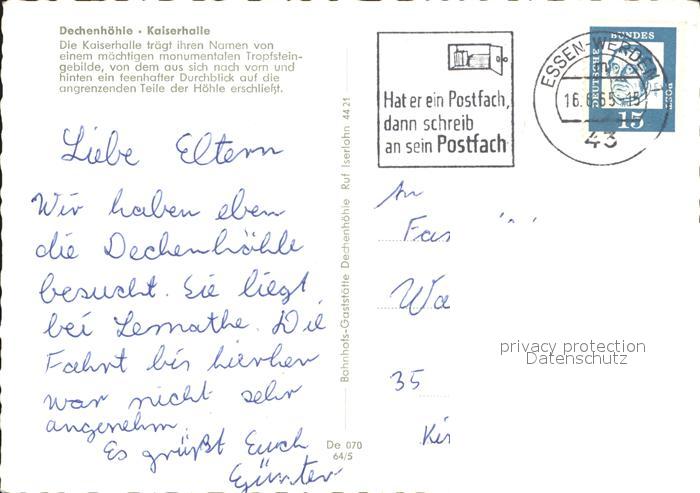 Dechenhöhle · Kaiserhalle
Die Kaiserhalle trägt ihren Namen von
einem mächtigen monumentalen Tropfstein-
gebilde, von dem aus sich nach vorn und
hinten ein feenhafter Durchblick auf die
angrenzenden Teile der Höhle erschließt.
Liebe Eltern
Wir haben eben
die Dechenhöhle
besucht. Sie liegt
bei Lemathe. Die
Fahrt bis hierher
war nicht sehr
angenehm.
Es grüßt Euch
Günter
Bahnhofs-Gaststätte Dechenhöhle Ruf Iserlohn 4421
De 070
64/5
Hat er ein Postfach,
dann schreib
an sein Postfach
ESSEN-WERDEN
16.6.65-15
43
DEUTSCHE
BUNDES
POST
15
An
Fas
Wa
35
Kir
privacy protection
Datenschutz